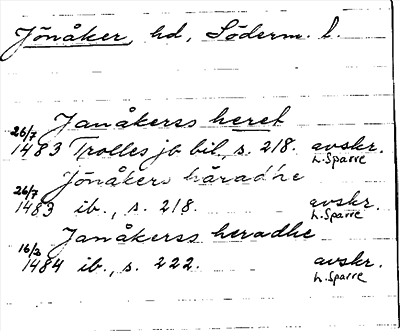 Jönåker, hd, Söderm. l.
Janåkerss heret
26/7 1483 Trolles jb bil., s. 218. avskr. L. Sparre
Jönåkers häradhe
26/7 1483 ib., s. 218. avskr. L. Sparre
Janåkerss heradhe
16/3 1484 ib., s. 222. avskr. L. Sparre